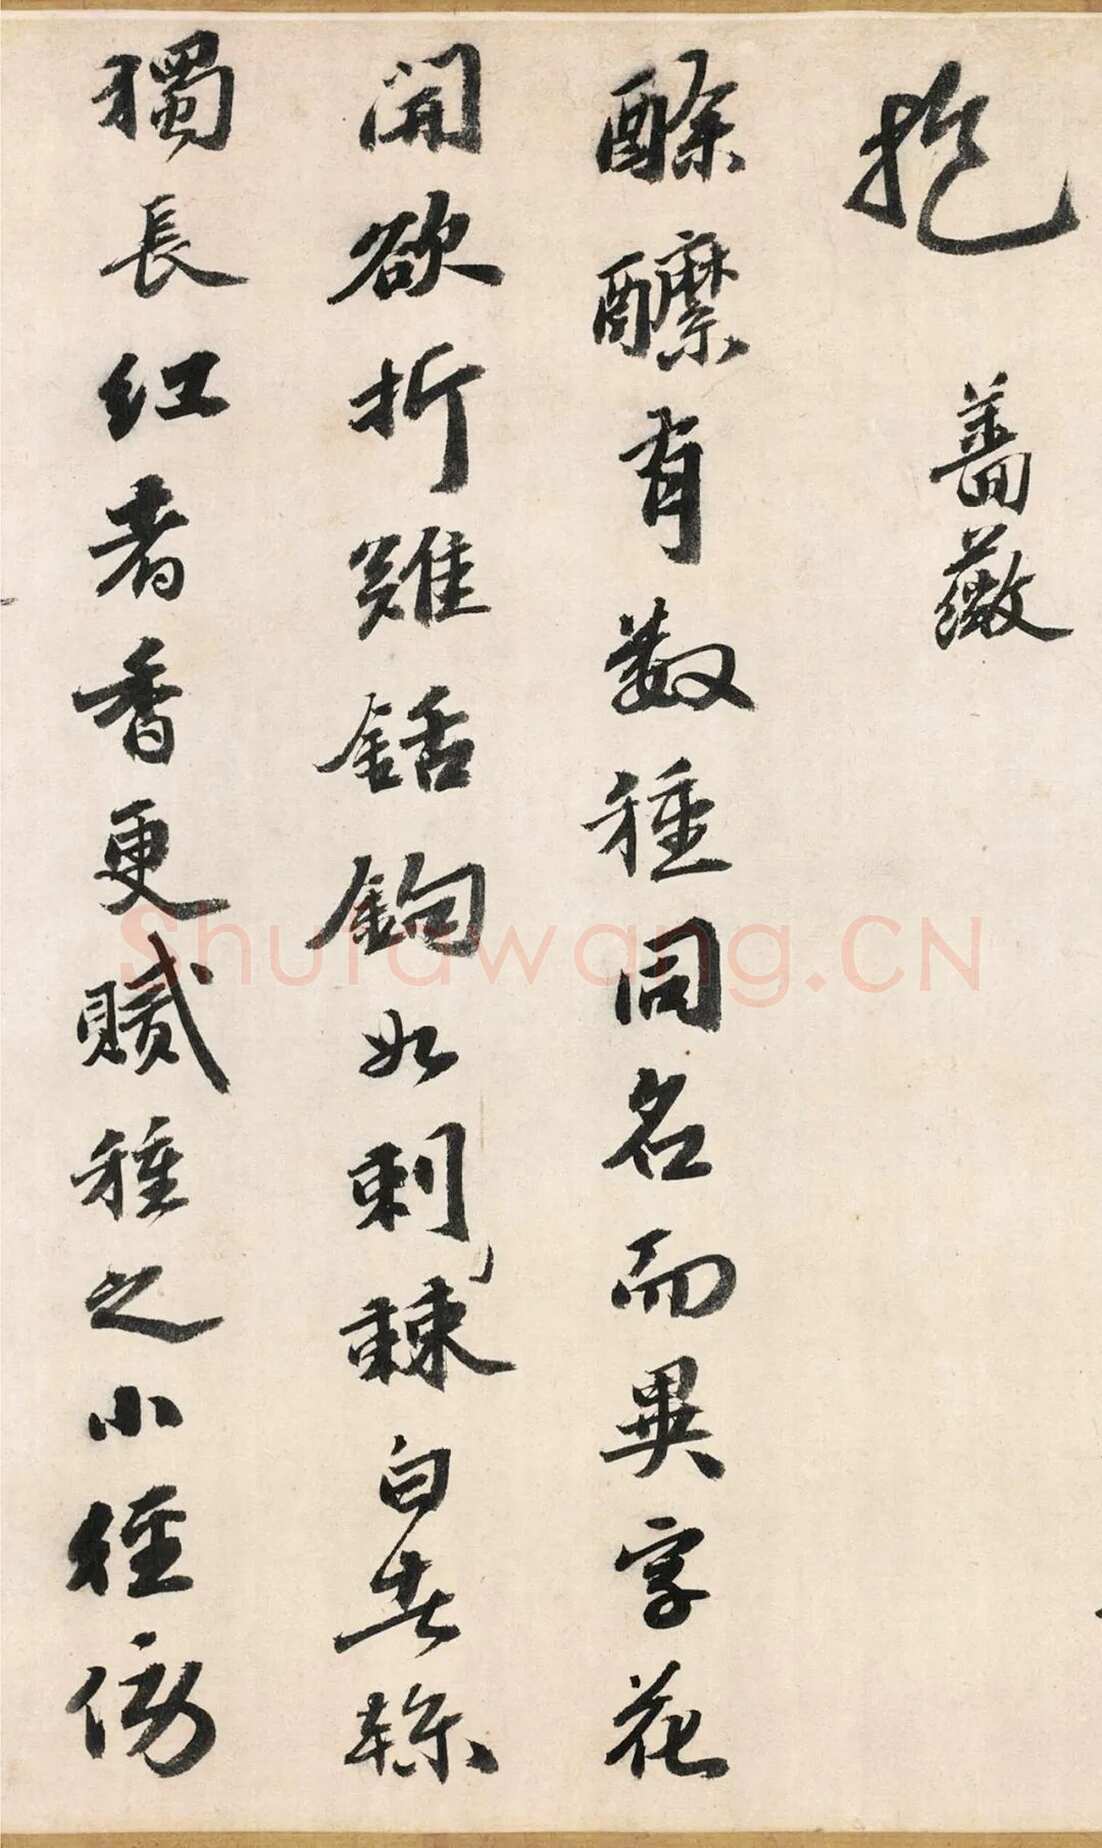 抱
薔薇
酴醾有數種同名而異字花
開欲折難銛鉤如刺棘白者
獨長紅者香更膩種之小徑傍
Shufawang.CN